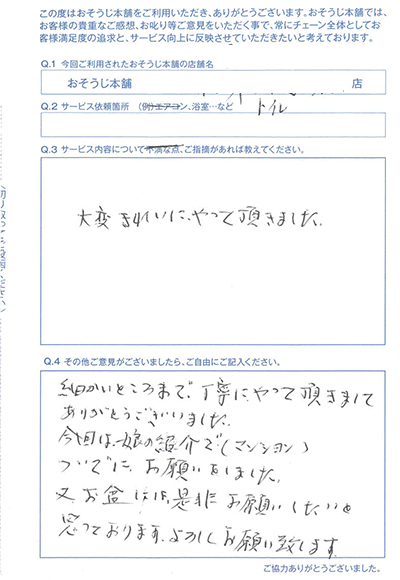 この度はおそうじ本舗をご利用いただき、ありがとうございます。おそうじ本舗では、
お客様の貴重なご感想、お叱り等ご意見をいただく事で、常にチェーン全体としてお
客様満足度の追求と、サービス向上に反映させていただきたいと考えております。
Q.1 今回ご利用されたおそうじ本舗の店舗名
おそうじ本舗 店
Q.2 サービス依頼箇所 (例)エアコン、浴室…など
トイレ
Q.3 サービス内容について不満な点、ご指摘があれば教えてください。
大変きれいに、やって頂きました。
Q.4 その他ご意見がございましたら、ご自由にご記入ください。
細かいところまで、丁寧にやって頂きまして
ありがとうございました。
今回は、娘の紹介で(マンション)
ついでに、お願いをしました。
又お盆には、是非お願いしたいと
思っております。よろしくお願い致します
ご協力ありがとうございました。